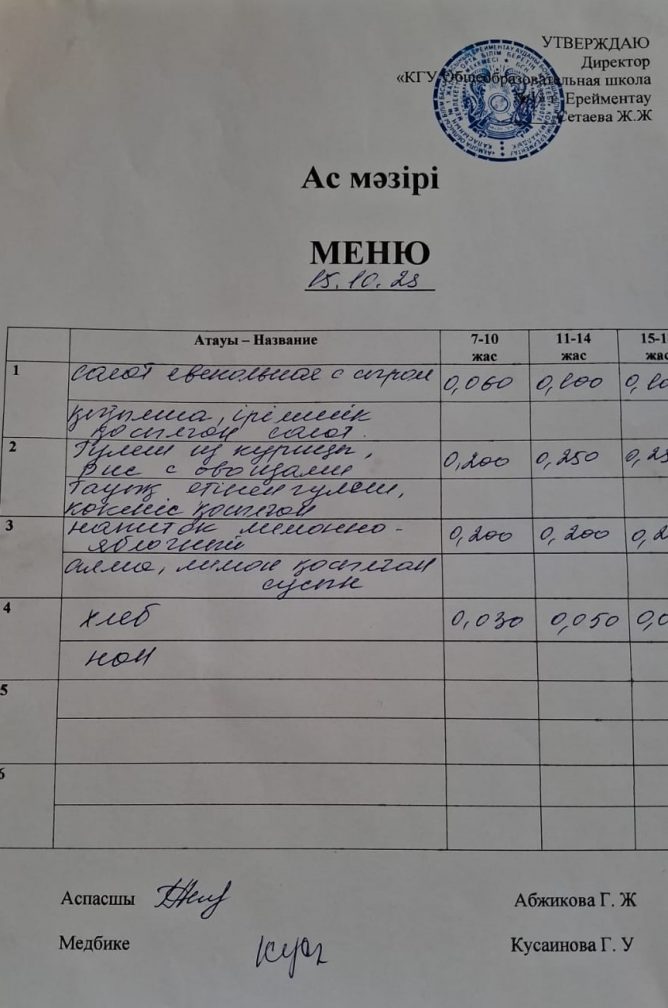 УТВЕРЖДАЮ
Директор
«КГУ Общеобразовательная школа
г. Ерейментау
Сетаева Ж.Ж
Ас мәзірі
МЕНЮ
15.10.25
Атауы – Название
7-10 жас
11-14 жас
15-1 жас
1
салат свекольная с сыром
0,060
0,100
0,10
қызылша, ірімшік
қосылған салат.
2
Гуляш из курицы,
рис с овощами
0,200
0,250
0,25
Тауық етінен гуляш,
көкөніс қосылған
3
напиток лимонно-
яблочный
0,200
0,200
0,2
алма, лимон қосылған
сусын
4
хлеб
0,030
0,050
0,0
нан
5
6
Аспасшы
Абжикова Г. Ж
Медбике
Кусаинова Г. У